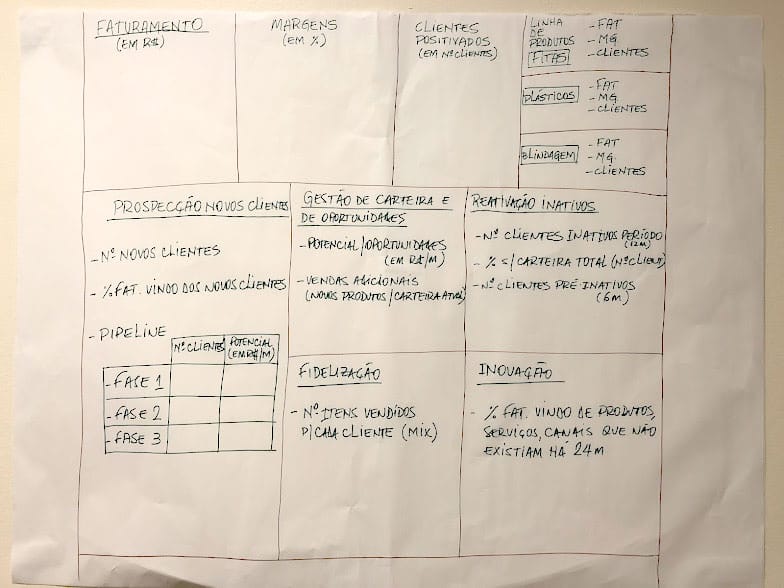 FATURAMENTO
(EM R$)
MARGENS
(EM %)
CLIENTES
POSITIVADOS
(EM Nº CLIENTES)
LINHA
DE
PRODUTOS
FITAS
- FAT
- MG
- CLIENTES
PLÁSTICOS
- FAT
- MG
- CLIENTES
BLINDAGEM
- FAT
- MG
- CLIENTES
PROSPECÇÃO NOVOS CLIENTES
- Nº NOVOS CLIENTES
- % FAT. VINDO DOS NOVOS CLIENTES
- PIPELINE
Nº CLIENTES
POTENCIAL
(EM R$/M)
- FASE 1
- FASE 2
- FASE 3
GESTÃO DE CARTEIRA E
DE OPORTUNIDADES
- POTENCIAL/OPORTUNIDADES
(EM R$/M)
- VENDAS ADICIONAIS
(NOVOS PRODUTOS/CARTEIRA ATUAL)
REATIVAÇÃO INATIVOS
- Nº CLIENTES INATIVOS PERÍODO
(12M)
- % S/ CARTEIRA TOTAL (Nº CLIENT)
- Nº CLIENTES PRÉ INATIVOS
(6M)
FIDELIZAÇÃO
- Nº ITENS VENDIDOS
P/ CADA CLIENTE (MIX)
INOVAÇÃO
- % FAT. VINDO DE PRODUTOS,
SERVIÇOS, CANAIS QUE NÃO
EXISTIAM HÁ 24M